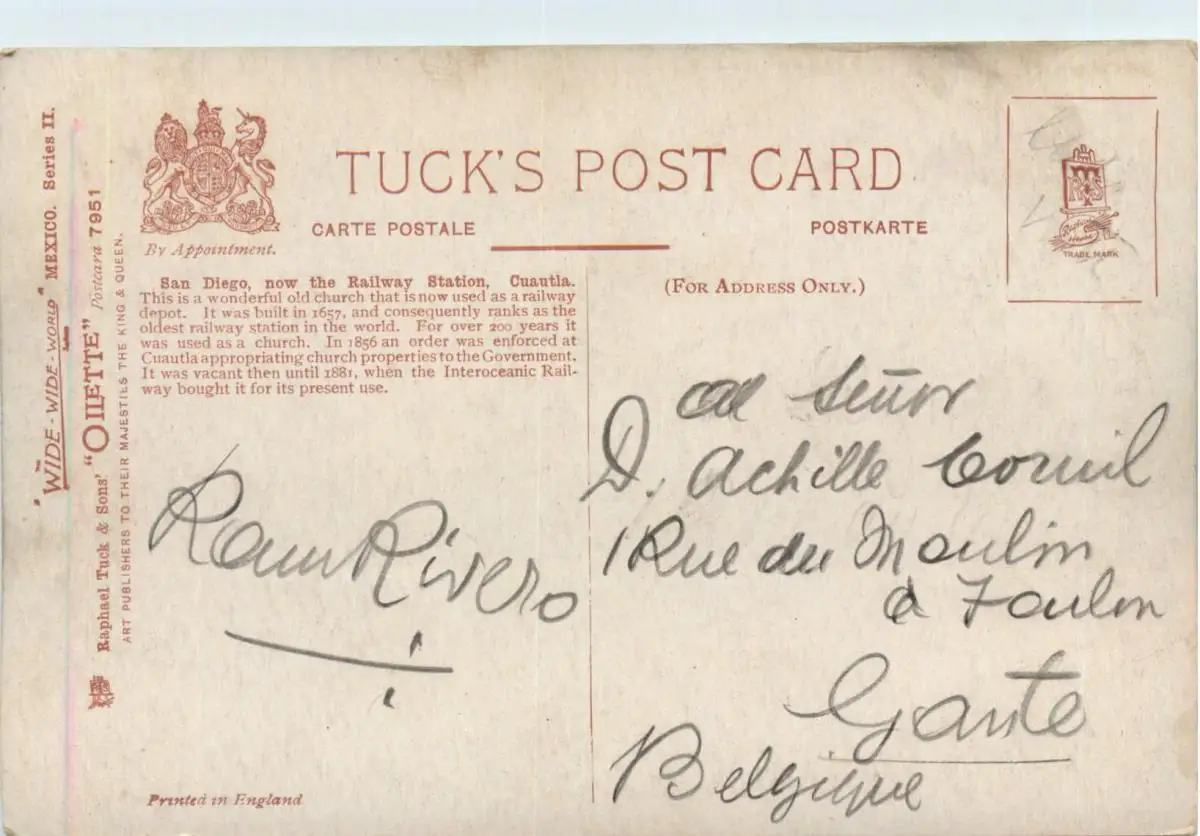 TUCK'S POST CARD
CARTE POSTALE
POSTKARTE
By Appointment.
(FOR ADDRESS ONLY.)
TRADE MARK
"WIDE-WIDE-WORLD" MEXICO. Series II.
Raphael Tuck & Sons' "OILETTE" Postcard 7951
ART PUBLISHERS TO THEIR MAJESTIES THE KING & QUEEN.
San Diego, now the Railway Station, Cuautla.
This is a wonderful old church that is now used as a railway
depot. It was built in 1657, and consequently ranks as the
oldest railway station in the world. For over 200 years it
was used as a church. In 1856 an order was enforced at
Cuautla appropriating church properties to the Government.
It was vacant then until 1881, when the Interoceanic Rail-
way bought it for its present use.
Rivero
Printed in England
al Señor
D. Achille
1 Rue du Moulin
à Toulon
Gante
Belgique